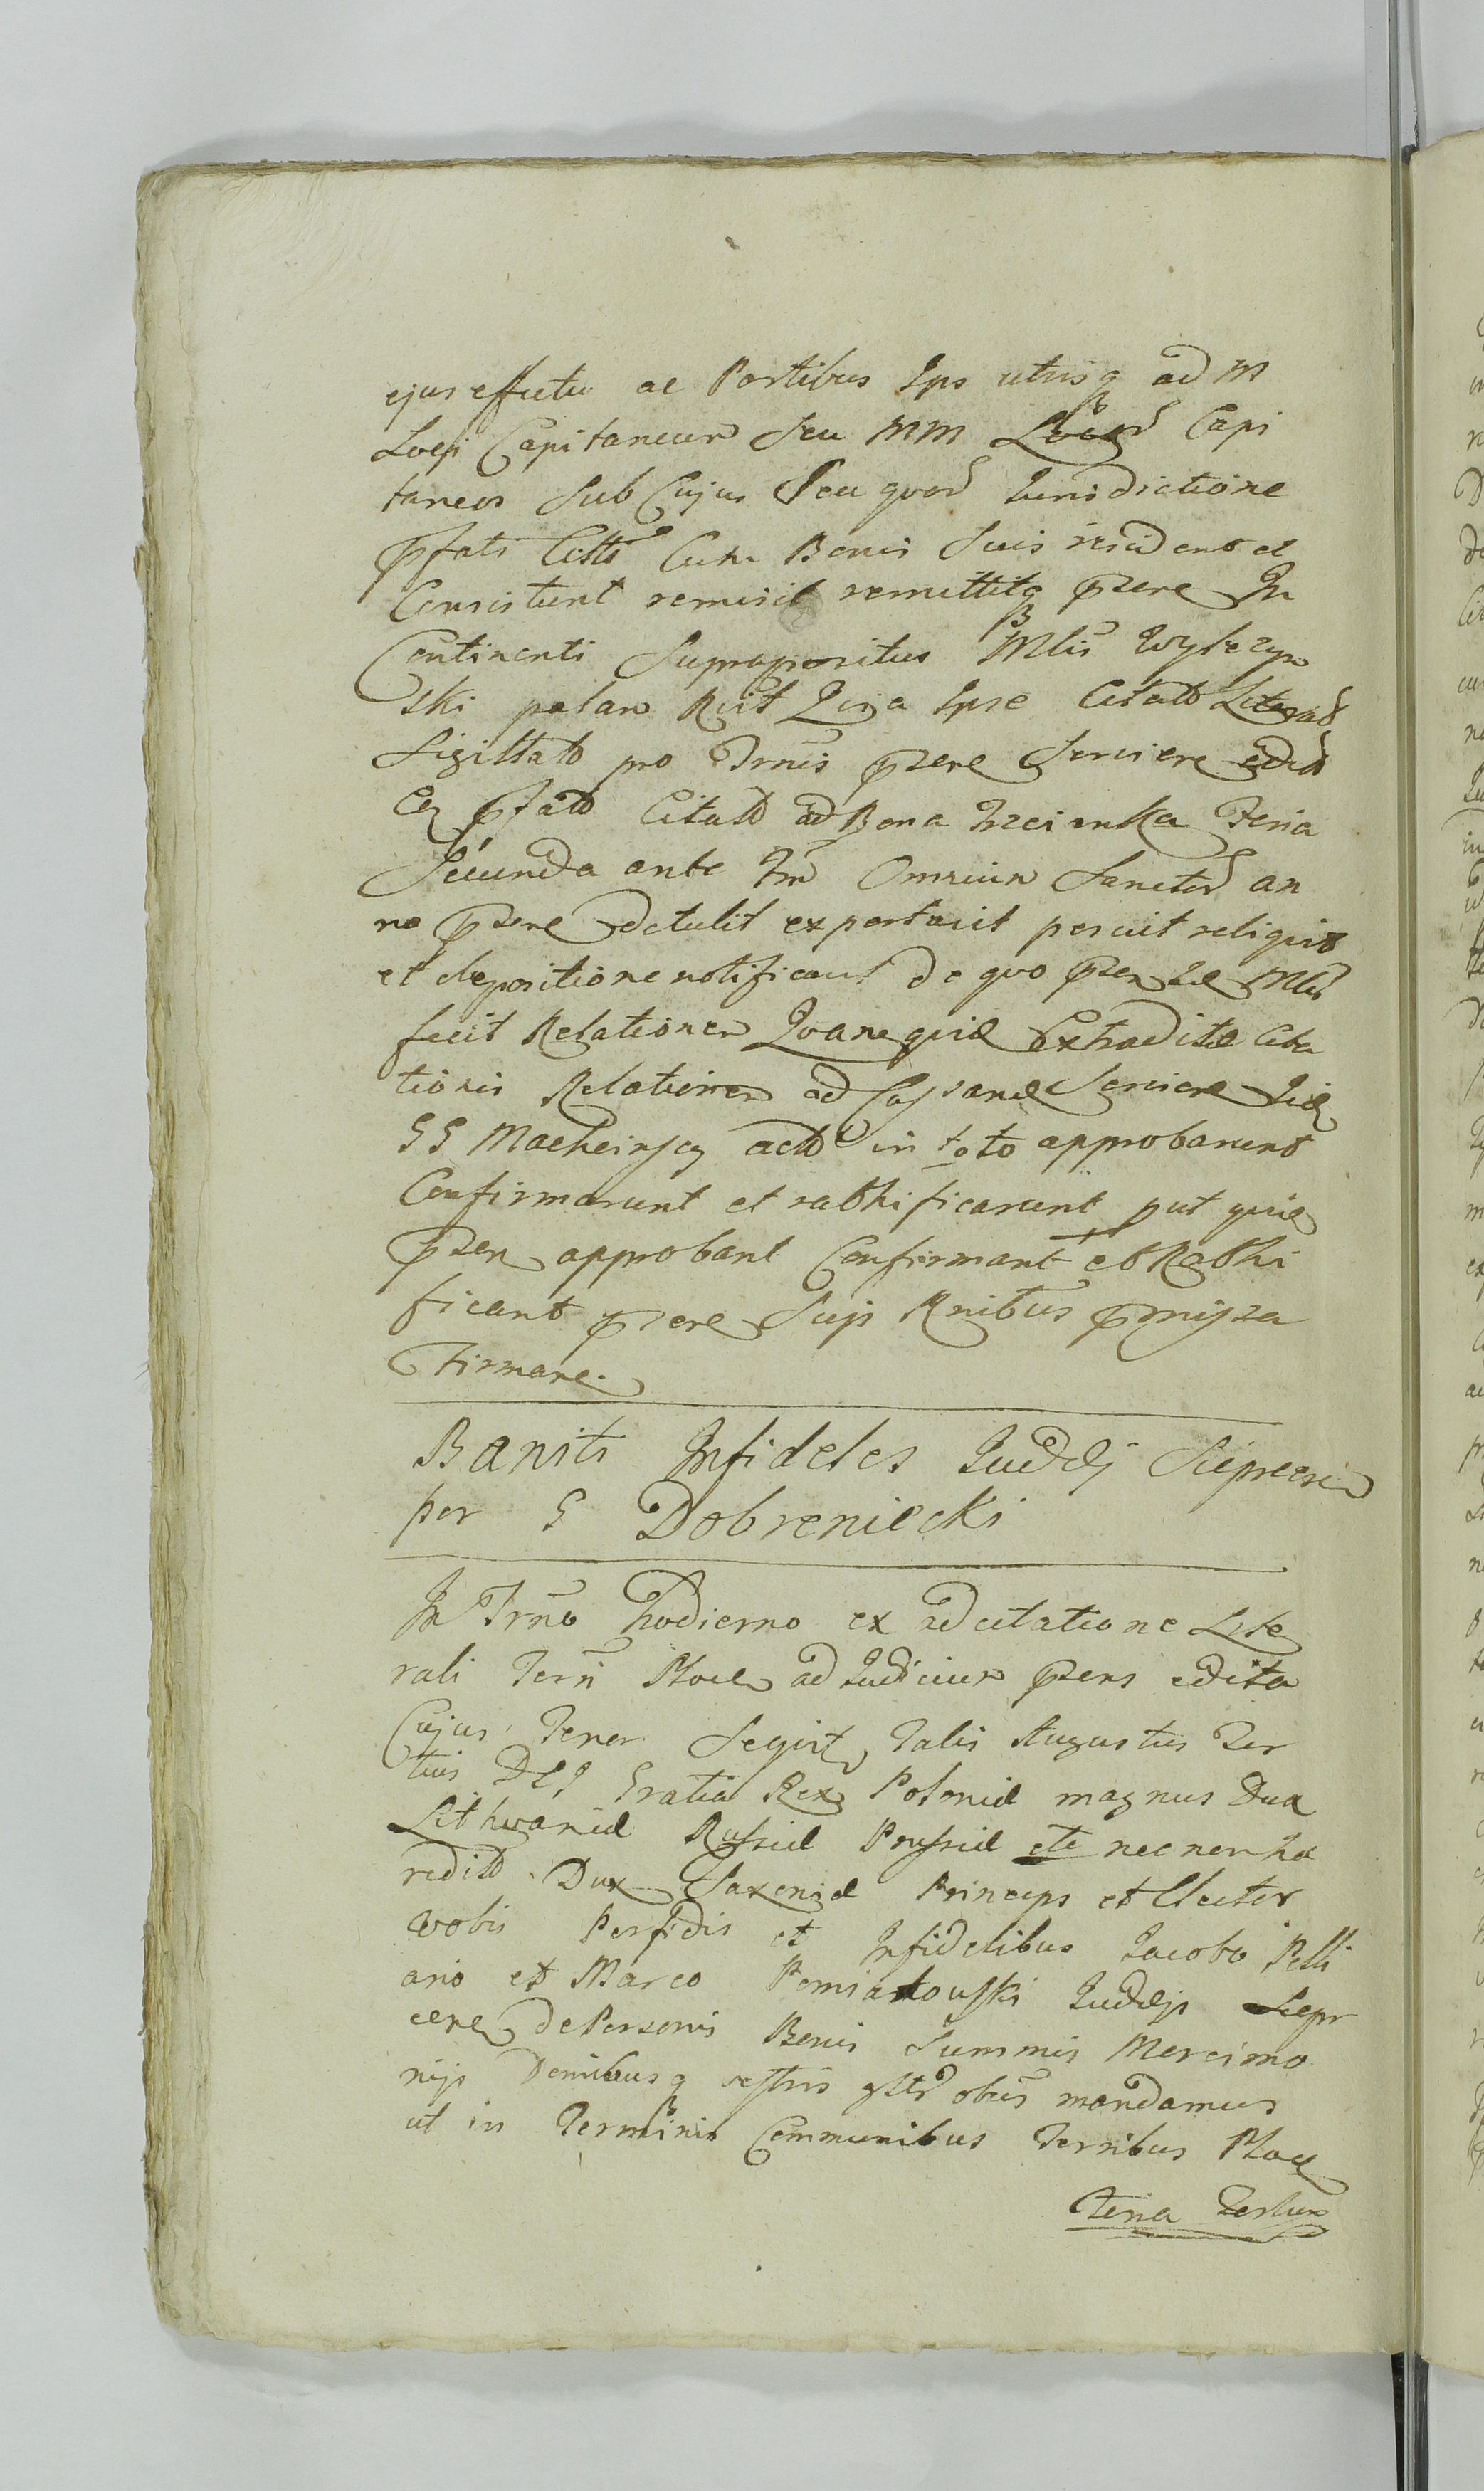 ejus effectu ac Partibus Ips utrisq ad M
Loci Capitaneum Seu MM Capi
taneos Sub Cujus Seu quor Jurisdictione
pfati Citti Cum Bonis Suis resident et
Consistunt remisit remittitq pzere In
Continenti Supraposi­tus Mlis Wylezyn
ski palam Rcit Quia Ipse Citatt Literatt
Sigillatt pro Trnis pzere Serviere edit
Ex pfatt Citatt ad Bona Trzcianka Feria
Secunda ante Fm Omnium Sanctor an
no pzere detulit exportavit posuit reliquit
et depositione notificavit de quo pzen Se Mlis
fecit Relationem Quaequid Extraditae Cita
tionis Relationem ad Cassand Serviere
GG Machcinscy actt in toto approbarunt
Confirmarunt et rathificarunt put quid
pzen approbant Confirmant et Rathi
ficant pzere Sup Rnibus pmissa
Firmare.
Baniti Infideles Judei Sieprcen
per G Dobreniecki
In Trno hodierno ex adcitatione Lite
rali Terri Ploce ad Judicium pzens edita
Cujus Tenor Sequit Talis Augustus Ter
tius DEI Gratia Rex Poloniae magnus Dux
Lithuaniae Russiae Prussiae etc nec non hae
reditt Dux Saxoniae Princeps et Elector
vobis Perfidis et Infidelibus Jacobo Pelli
ario et Marco Pemiatouski Judeis Siepr
cens de Personis Bonis Summis Mercimo
nijs Domibusq vestris gltr obus mandamus
ut in Terminis Communibus Terribus Ploce
Feria Tertia